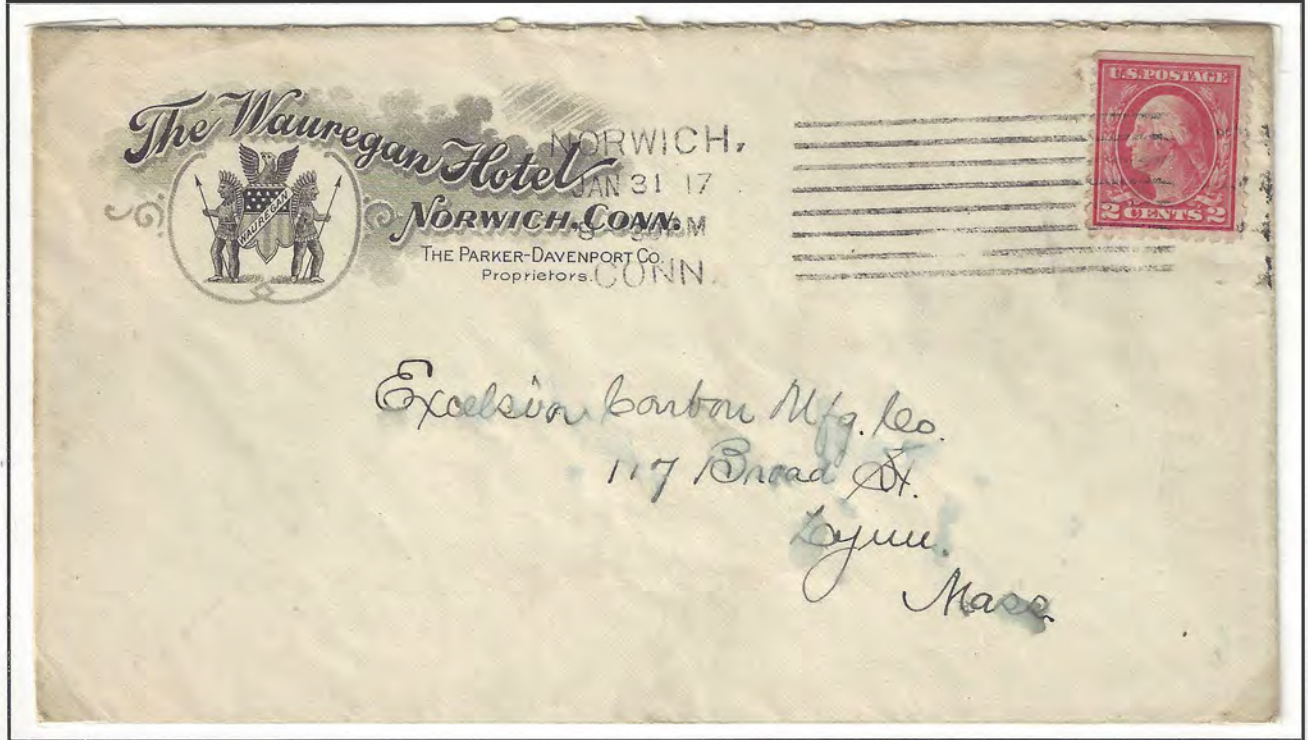 The Wauregan Hotel
WAUREGAN
NORWICH, CONN.
THE PARKER-DAVENPORT CO.
Proprietors.
NORWICH,
JAN 31 17
CONN.
U.S. POSTAGE
2 CENTS 2
Excelsior Carbon Mfg. Co.
117 Broad St.
Lynn.
Mass